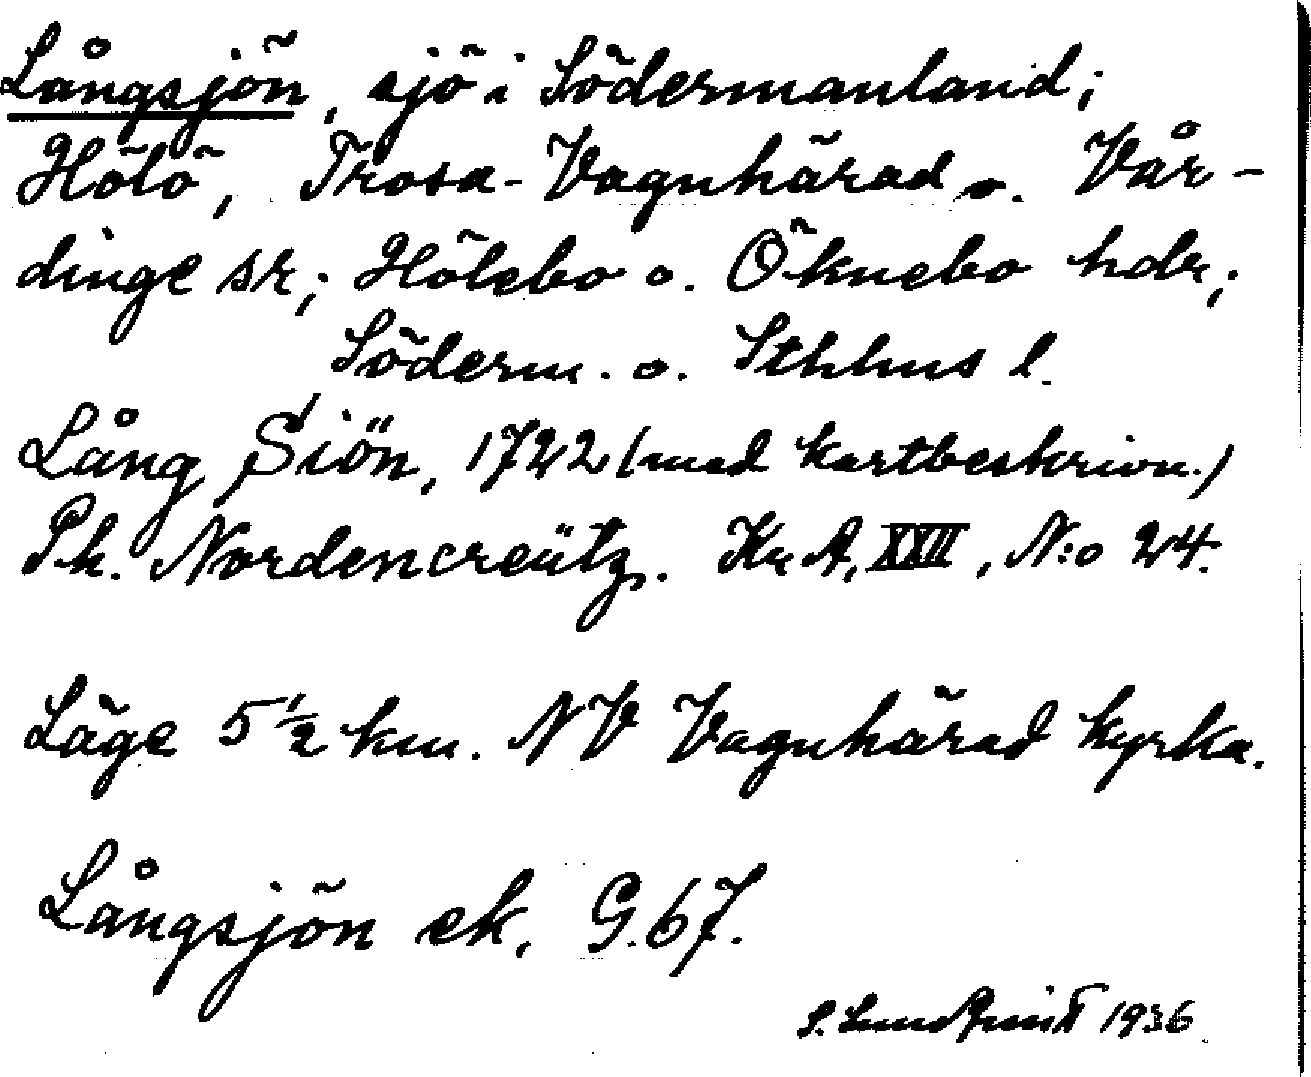 Långsjön, sjö i Södermanland;
Hölö, Trosa-Vagnhärad o. Vår-
dinge sr; Hölebo o. Öknebo hdr;
Söderm. o. Sthlms l.
Lång Siön, 1722 (med kartbeskrivn.)
Ph. Nordencreütz. Kr A, XXII, N:o 24.
Läge 5 1/2 km. NV Vagnhärad kyrka.
Långsjön ek. G. 67.
S. Lundqvist 1936